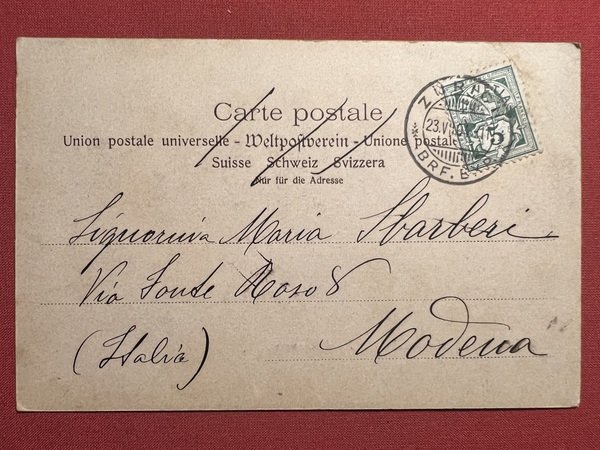 Carte postale
Union postale universelle - Weltpostverein - Unione postale
Suisse Schweiz Svizzera
Nur für die Adresse
ZÜRICH
23.V
BRF. EXP.
5
Signorina Maria Sbarberi
Via Fonte Raso 8
Modena
(Italia)